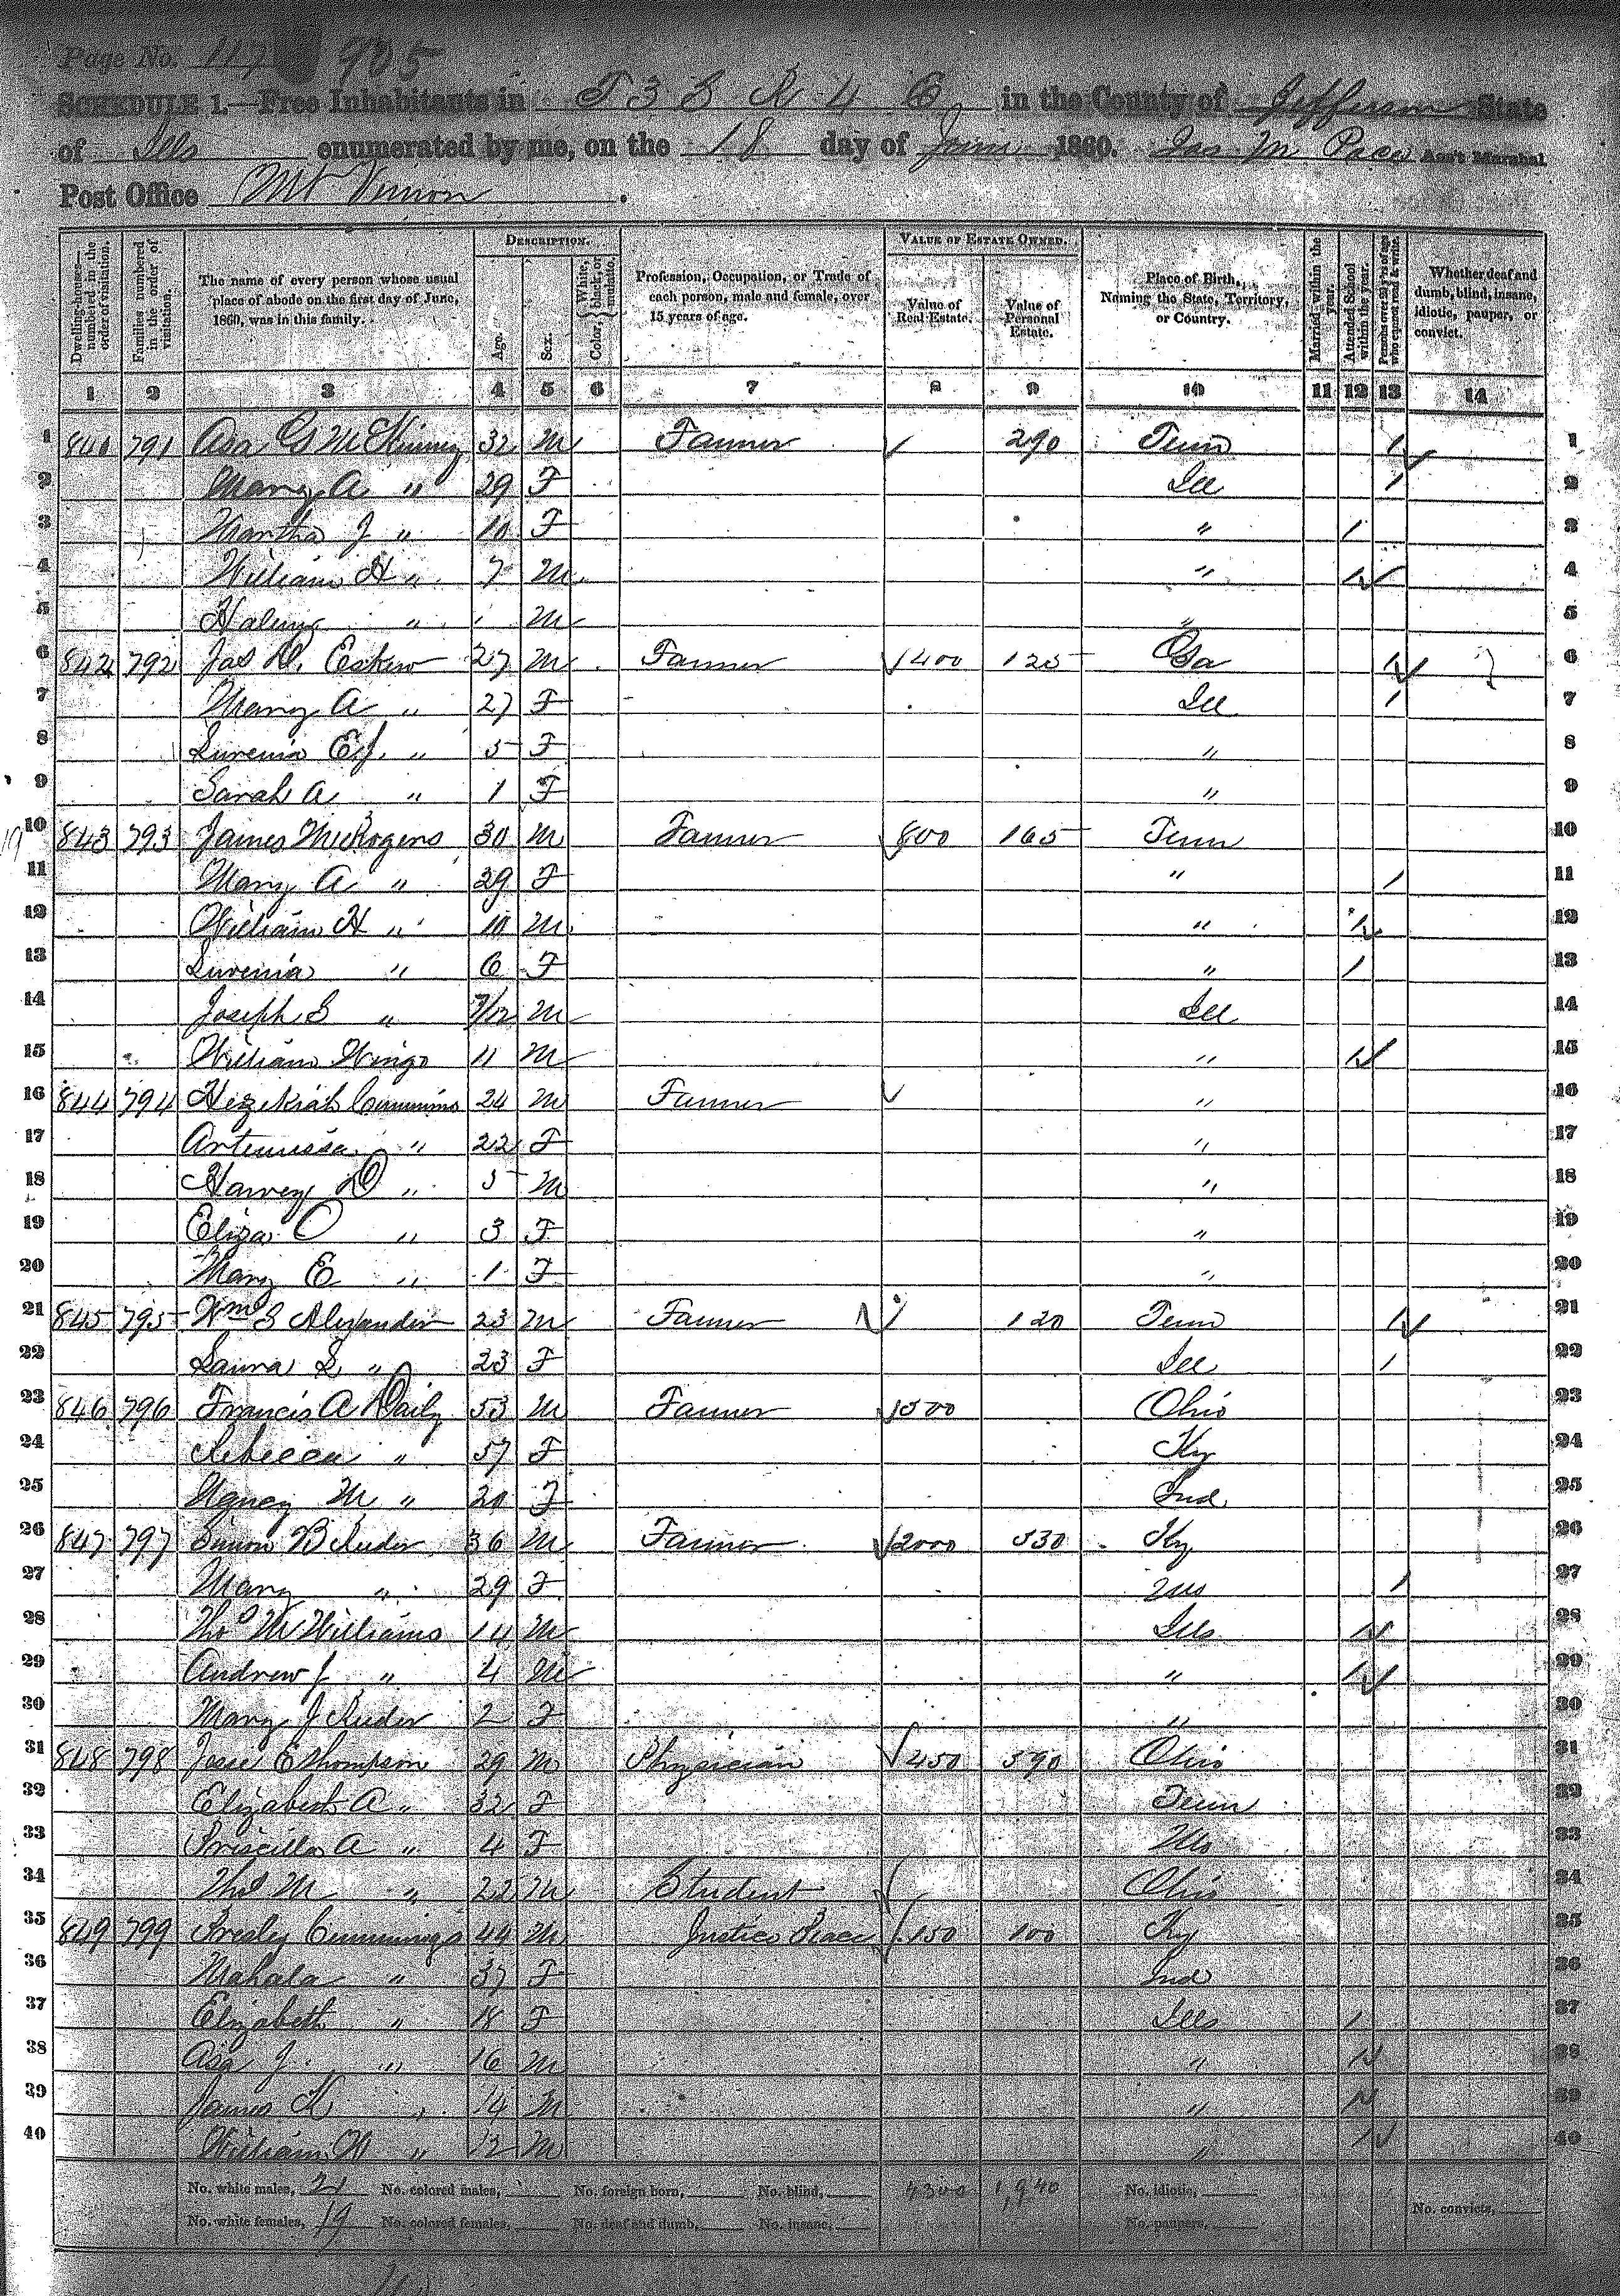 Page No. 117 905
SCHEDULE 1.—Free Inhabitants in T 3 S R 4 E in the County of Jefferson State
of Ills enumerated by me, on the 18 day of June 1860. Jas M Pace Ass't Marshal
Post Office Mt Vernon.
Dwelling-houses—numbered in the order of visitation.
Families numbered in the order of visitation.
The name of every person whose usual place of abode on the first day of June, 1860, was in this family.
DESCRIPTION.
Age.
Sex.
Color, White, black, or mulatto.
Profession, Occupation, or Trade of each person, male and female, over 15 years of age.
VALUE OF ESTATE OWNED.
Value of Real Estate.
Value of Personal Estate.
Place of Birth, Naming the State, Territory, or Country.
Married within the year.
Attended School within the year.
Persons over 20 y'rs of age who cannot read & write.
Whether deaf and dumb, blind, insane, idiotic, pauper, or convict.
1 2 3 4 5 6 7 8 9 10 11 12 13 14
1 840 791 Asa G McKinney 32 M Farmer 290 Tenn 1 1
2 Mary A " 29 F Ill 1 2
3 Martha J " 10 F " 1 3
4 William H " 7 M " 1 4
5 " M " 5
6 842 792 Jas D. Eskew 27 M Farmer 400 125 Ga 1 6
7 Mary A " 27 F Ill 1 7
8 Lurenia E.J. " 5 F " 8
9 Sarah A " 1 F " 9
10 843 793 James M Rogers 30 M Farmer 800 165 Tenn 10
11 Mary A " 29 F " 1 11
12 William H " 10 M " 1 12
13 Lurenia " 6 F " 1 13
14 Joseph S " 7/12 M Ill 14
15 William Wingo 11 M " 1 15
16 844 794 Hezekiah Cummins 24 M Farmer " 16
17 Artemissa " 22 F " 17
18 Harvey D " 5 M " 18
19 Eliza C " 3 F " 19
20 Mary E " 1 F " 20
21 845 795 Wm S Alexander 23 M Farmer 120 Tenn 1 21
22 Laura L " 23 F Ill 1 22
23 846 796 Francis A Daily 53 M Farmer 500 Ohio 23
24 Rebecca " 57 F Ky 24
25 M " 20 F Ind 25
26 847 797 Simon B 36 M Farmer 2000 530 Ky 26
27 Mary " 29 F Ills 1 27
28 Thos M Williams 14 M Ills 1 28
29 Andrew J " 4 M " 1 29
30 Mary J 2 F " 30
31 848 798 Jesse C Thompson 29 M Physician 450 590 Ohio 31
32 Elizabeth A " 32 F Tenn 32
33 Priscilla A " 4 F Ills 33
34 Thos M " 22 M Student Ohio 34
35 849 799 Presley Cummings 44 M Justice Peace 150 100 Ky 35
36 Mahala " 37 F Ind 36
37 Elizabeth " 18 F Ills 1 37
38 Asa J. " 16 M " 1 38
39 James K " 14 M " 1 39
40 William W " 12 M " 1 40
No. white males, 21 No. colored males, No. foreign born, No. blind, 4300 1,940 No. idiotic,
No. white females, 19 No. colored females, No. deaf and dumb, No. insane, No. paupers, No. convicts,